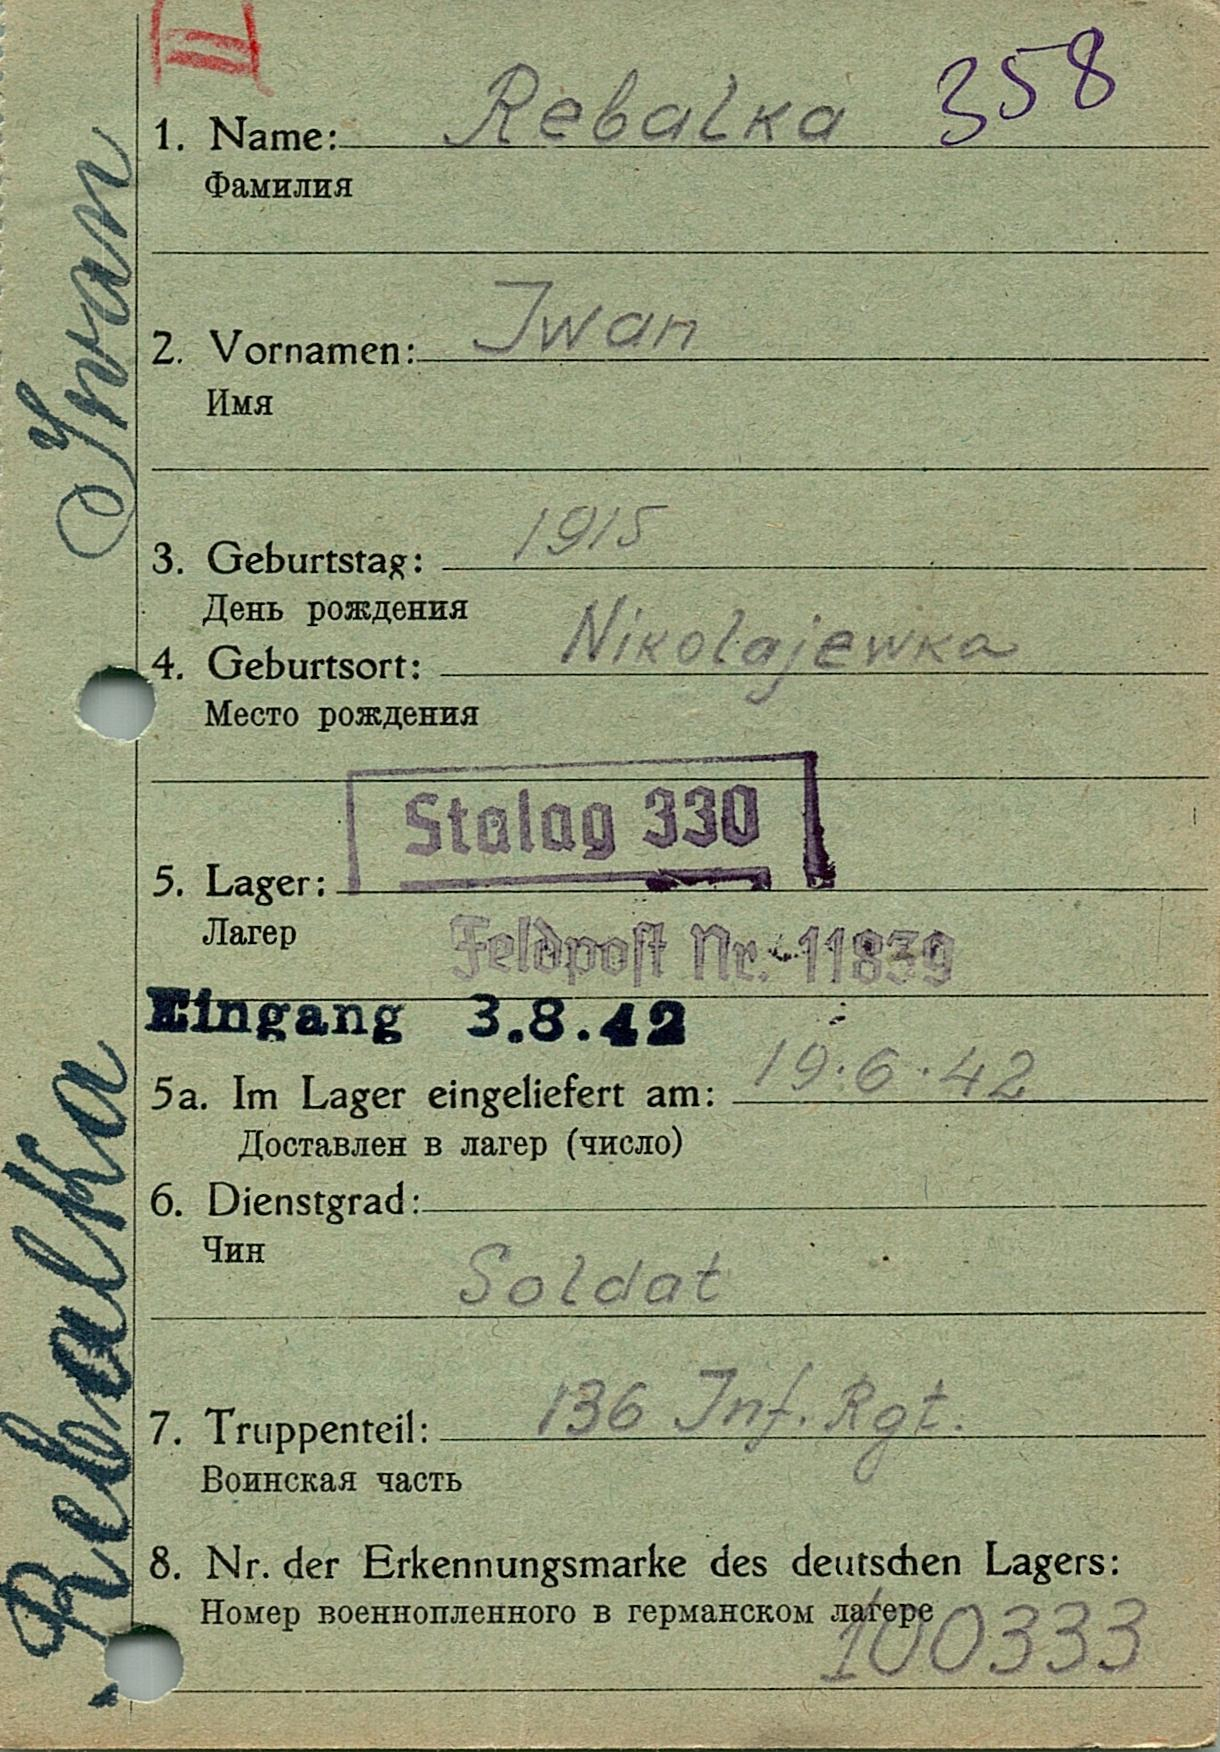 II
358
1. Name: Rebalka
Фамилия
2. Vornamen: Iwan
Имя
3. Geburtstag: 1915
День рождения
4. Geburtsort: Nikolajewka
Место рождения
Stalag 330
5. Lager:
Лагер
Feldpost Nr. 11839
Eingang 3.8.42
5a. Im Lager eingeliefert am: 19.6.42
Доставлен в лагер (число)
6. Dienstgrad:
Чин
Soldat
7. Truppenteil: 136 Inf. Rgt.
Воинская часть
8. Nr. der Erkennungsmarke des deutschen Lagers:
Номер военнопленного в германском лагере
100333
Rebalka Iwan